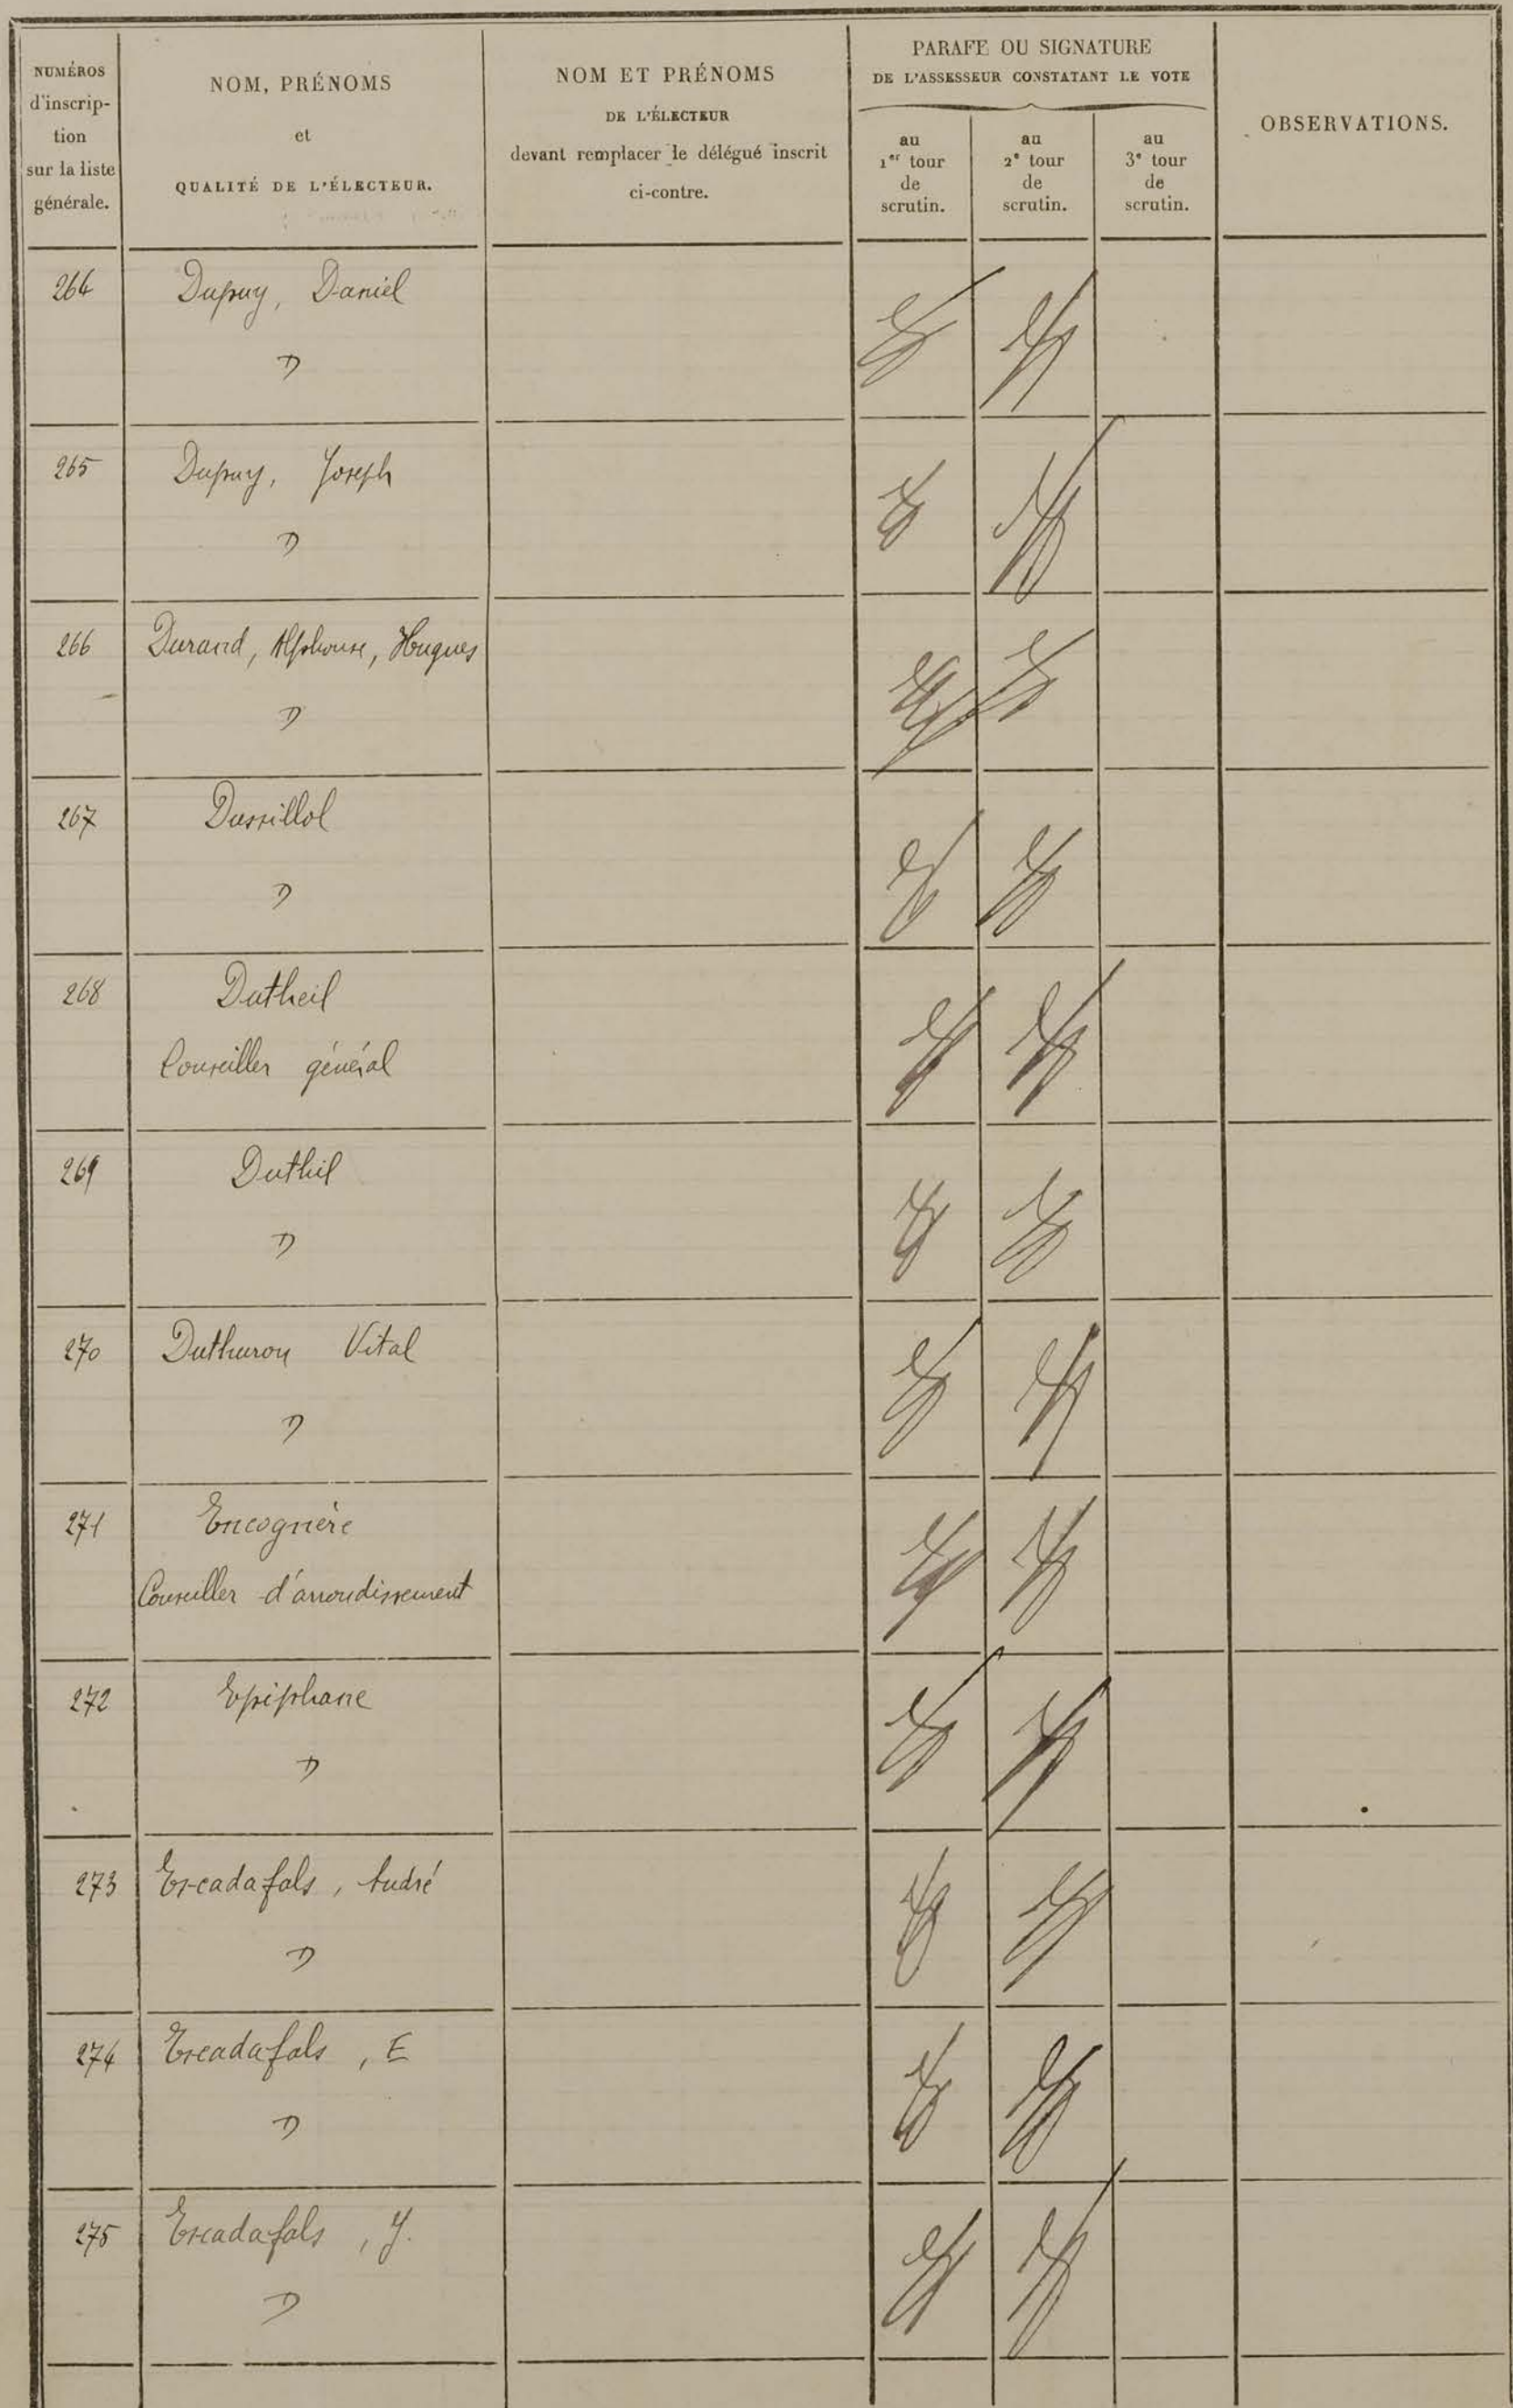 NUMÉROS
d'inscrip-
tion
sur la liste
générale.
NOM, PRÉNOMS
et
QUALITÉ DE L'ÉLECTEUR.
NOM ET PRÉNOMS
DE L'ÉLECTEUR
devant remplacer le délégué inscrit
ci-contre.
PARAFE OU SIGNATURE
DE L'ASSESSEUR CONSTATANT LE VOTE
au
1er tour
de
scrutin.
au
2e tour
de
scrutin.
au
3e tour
de
scrutin.
OBSERVATIONS.
264 Dupuy, Daniel
D
265 Dupuy, Joseph
D
266 Durand, Alphonse, Hugues
D
267 Dussillol
D
268 Dutheil
Conseiller général
269 Dutheil
D
270 Duthuron Vital
D
271 Encognère
Conseiller d'arrondissement
272 Epiphane
D
273 Escadafals, André
D
274 Escadafals, E
D
275 Escadafals, J.
D